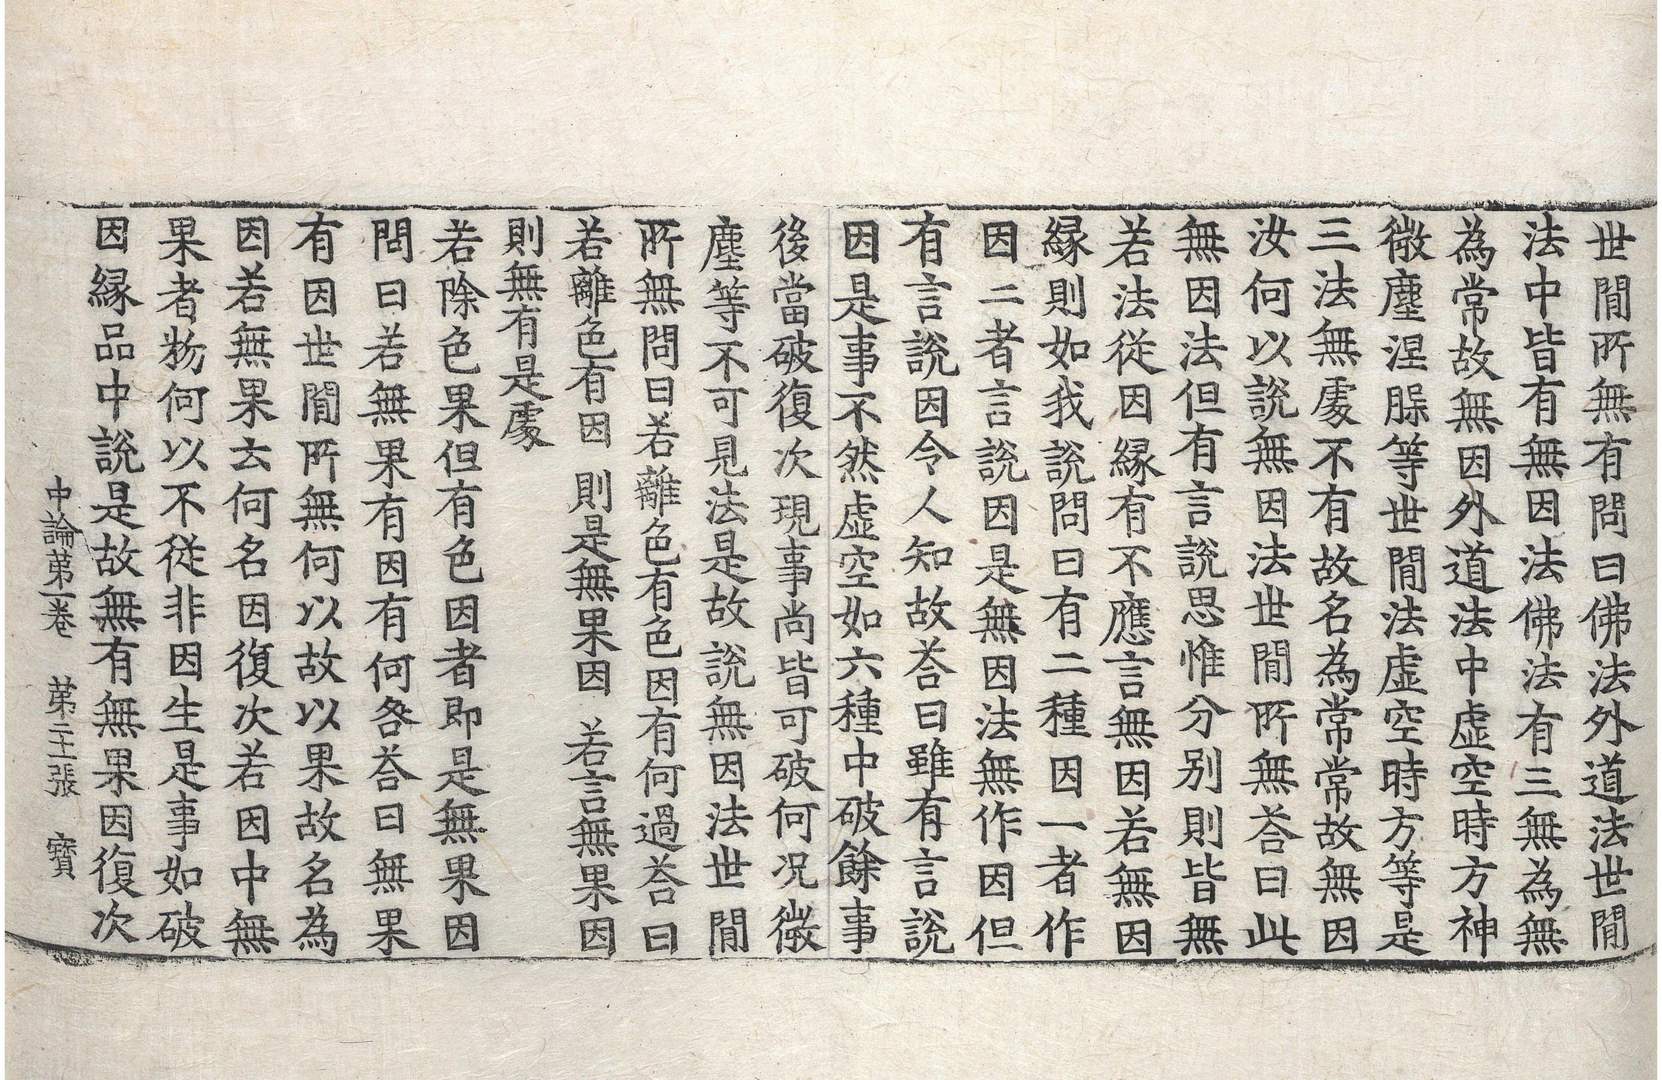 世閒所無有問曰佛法外道法世閒
法中皆有無因法佛法有三無為無
為常故無因外道法中虛空時方神
微塵涅槃等世閒法虛空時方等是
三法無處不有故名為常常故無因
汝何以說無因法世閒所無荅曰此
無因法但有言說思惟分別則皆無
若法從因縁有不應言無因若無因
縁則如我說問曰有二種因一者作
因二者言說因是無因法無作因但
有言說因令人知故荅曰雖有言說
因是事不然虛空如六種中破餘事
後當破復次現事尚皆可破何况微
塵等不可見法是故說無因法世閒
所無問曰若離色有色因有何過荅曰
若離色有因 則是無果因 若言無果因
則無有是處
若除色果但有色因者即是無果因
問曰若無果有因有何咎荅曰無果
有因世閒所無何以故以果故名為
因若無果云何名因復次若因中無
果者物何以不從非因生是事如破
因縁品中說是故無有無果因復次
中論第一卷 第張 寶